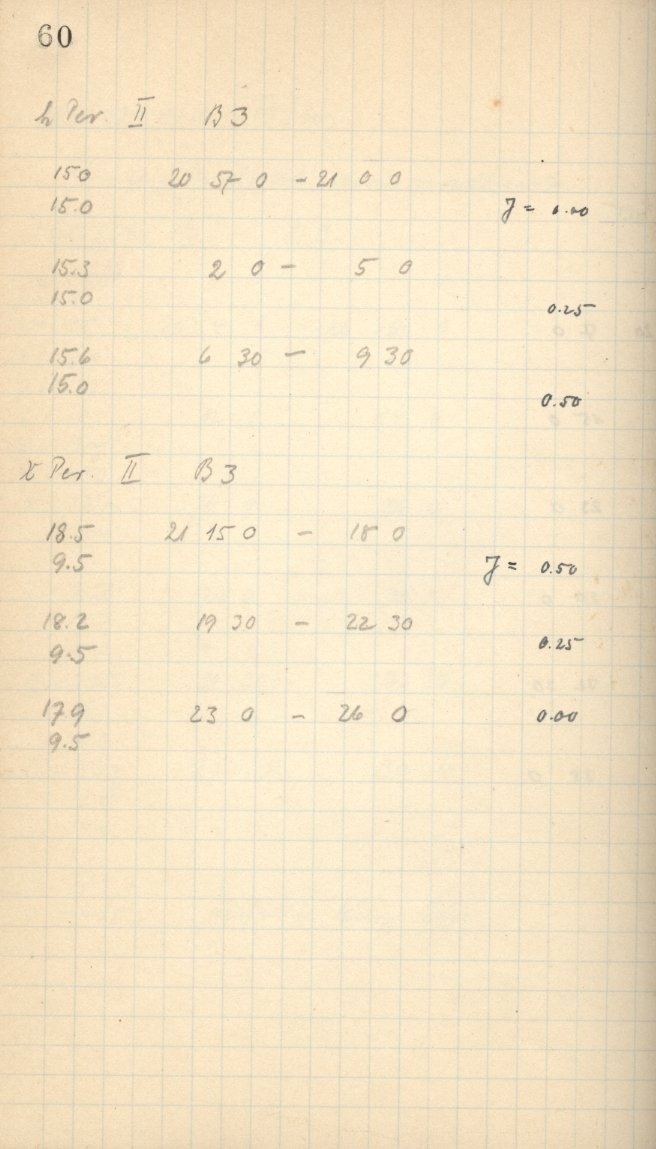 60
h Per. II B 3
150 20 57 0 - 21 0 0
15.0 J = 0.00
15.3 2 0 - 5 0
15.0 0.25
15.6 6 30 - 9 30
15.0 0.50
χ Per. II B 3
18.5 21 15 0 - 18 0
9.5 J = 0.50
18.2 19 30 - 22 30
9.5 0.25
179 23 0 - 26 0 0.00
9.5